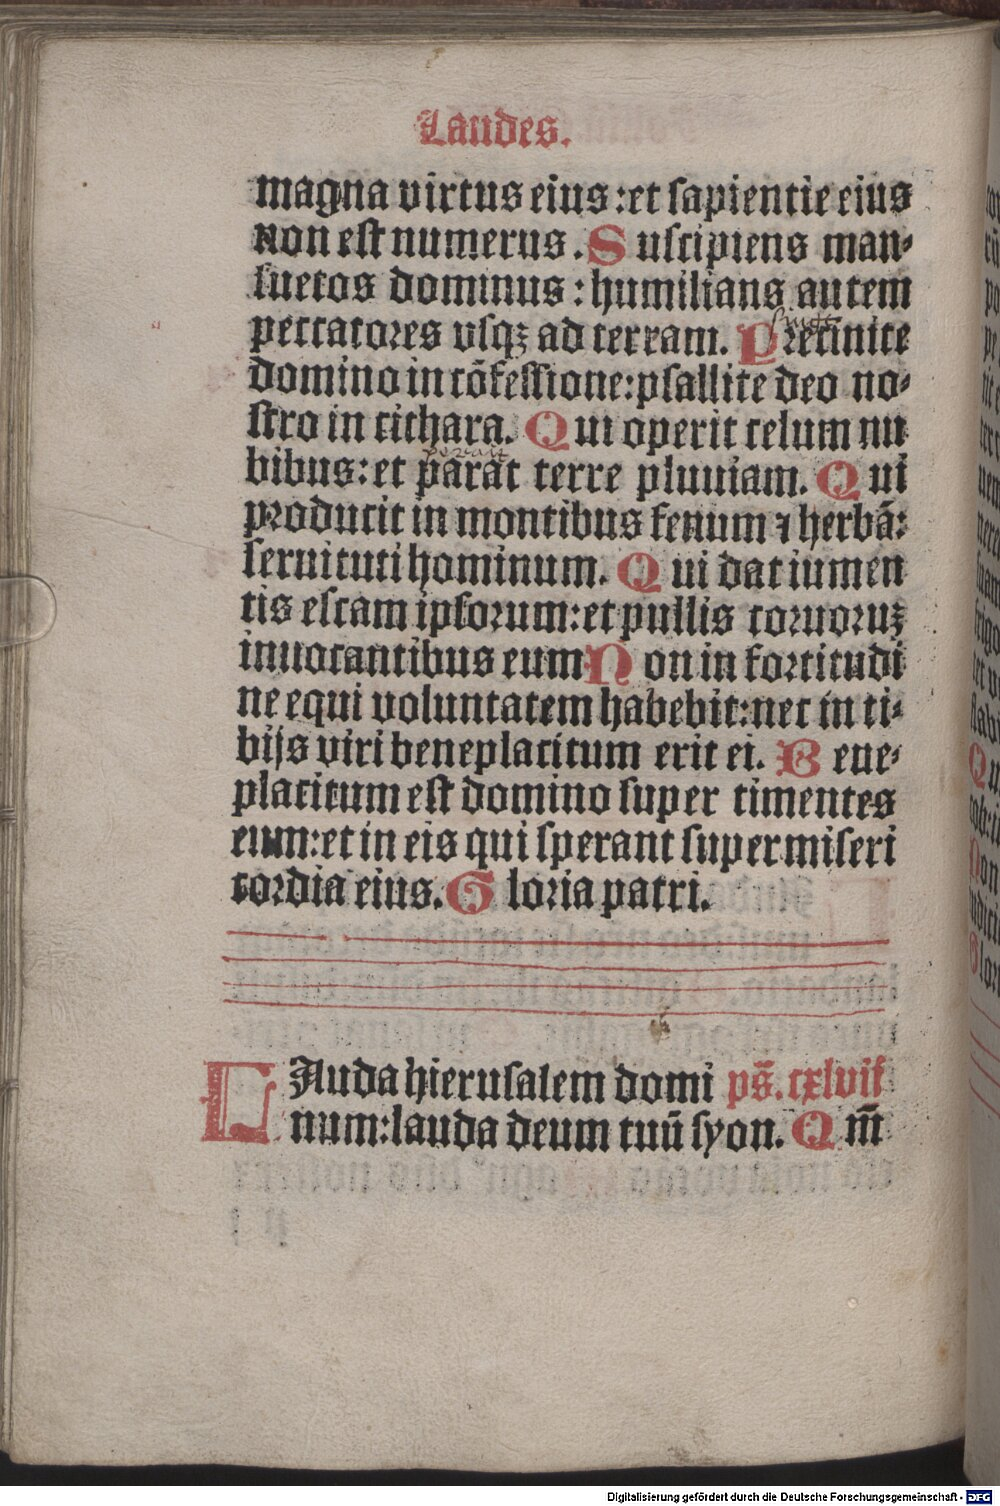 Laudes.
magna virtus eius:et sapientie eius
non est numerus. Suscipiens man-
suetos dominus: humilians autem
peccatores vsqꝫ ad terram. Precinite
domino in cōfessione:psallite deo no-
stro in cithara. Qui operit celum nu
bibus:et parat terre pluuiam. Qui
producit in montibus fenum ⁊ herbā:
seruituti hominum. Qui dat iumen
tis escam ipsorum:et pullis coruoruꝫ
inuocantibus eum Non in fortitudi
ne equi voluntatem habebit:nec in ti-
bijs viri beneplacitum erit ei. Bene-
placitum est domino super timentes
eum:et in eis qui sperant super miseri
cordia eius. Gloria patri.
LAuda hierusalem domi ps̄. cxlvii
num:lauda deum tuū syon. Qm̄
Digitalisierung gefördert durch die Deutsche Forschungsgemeinschaft - DFG